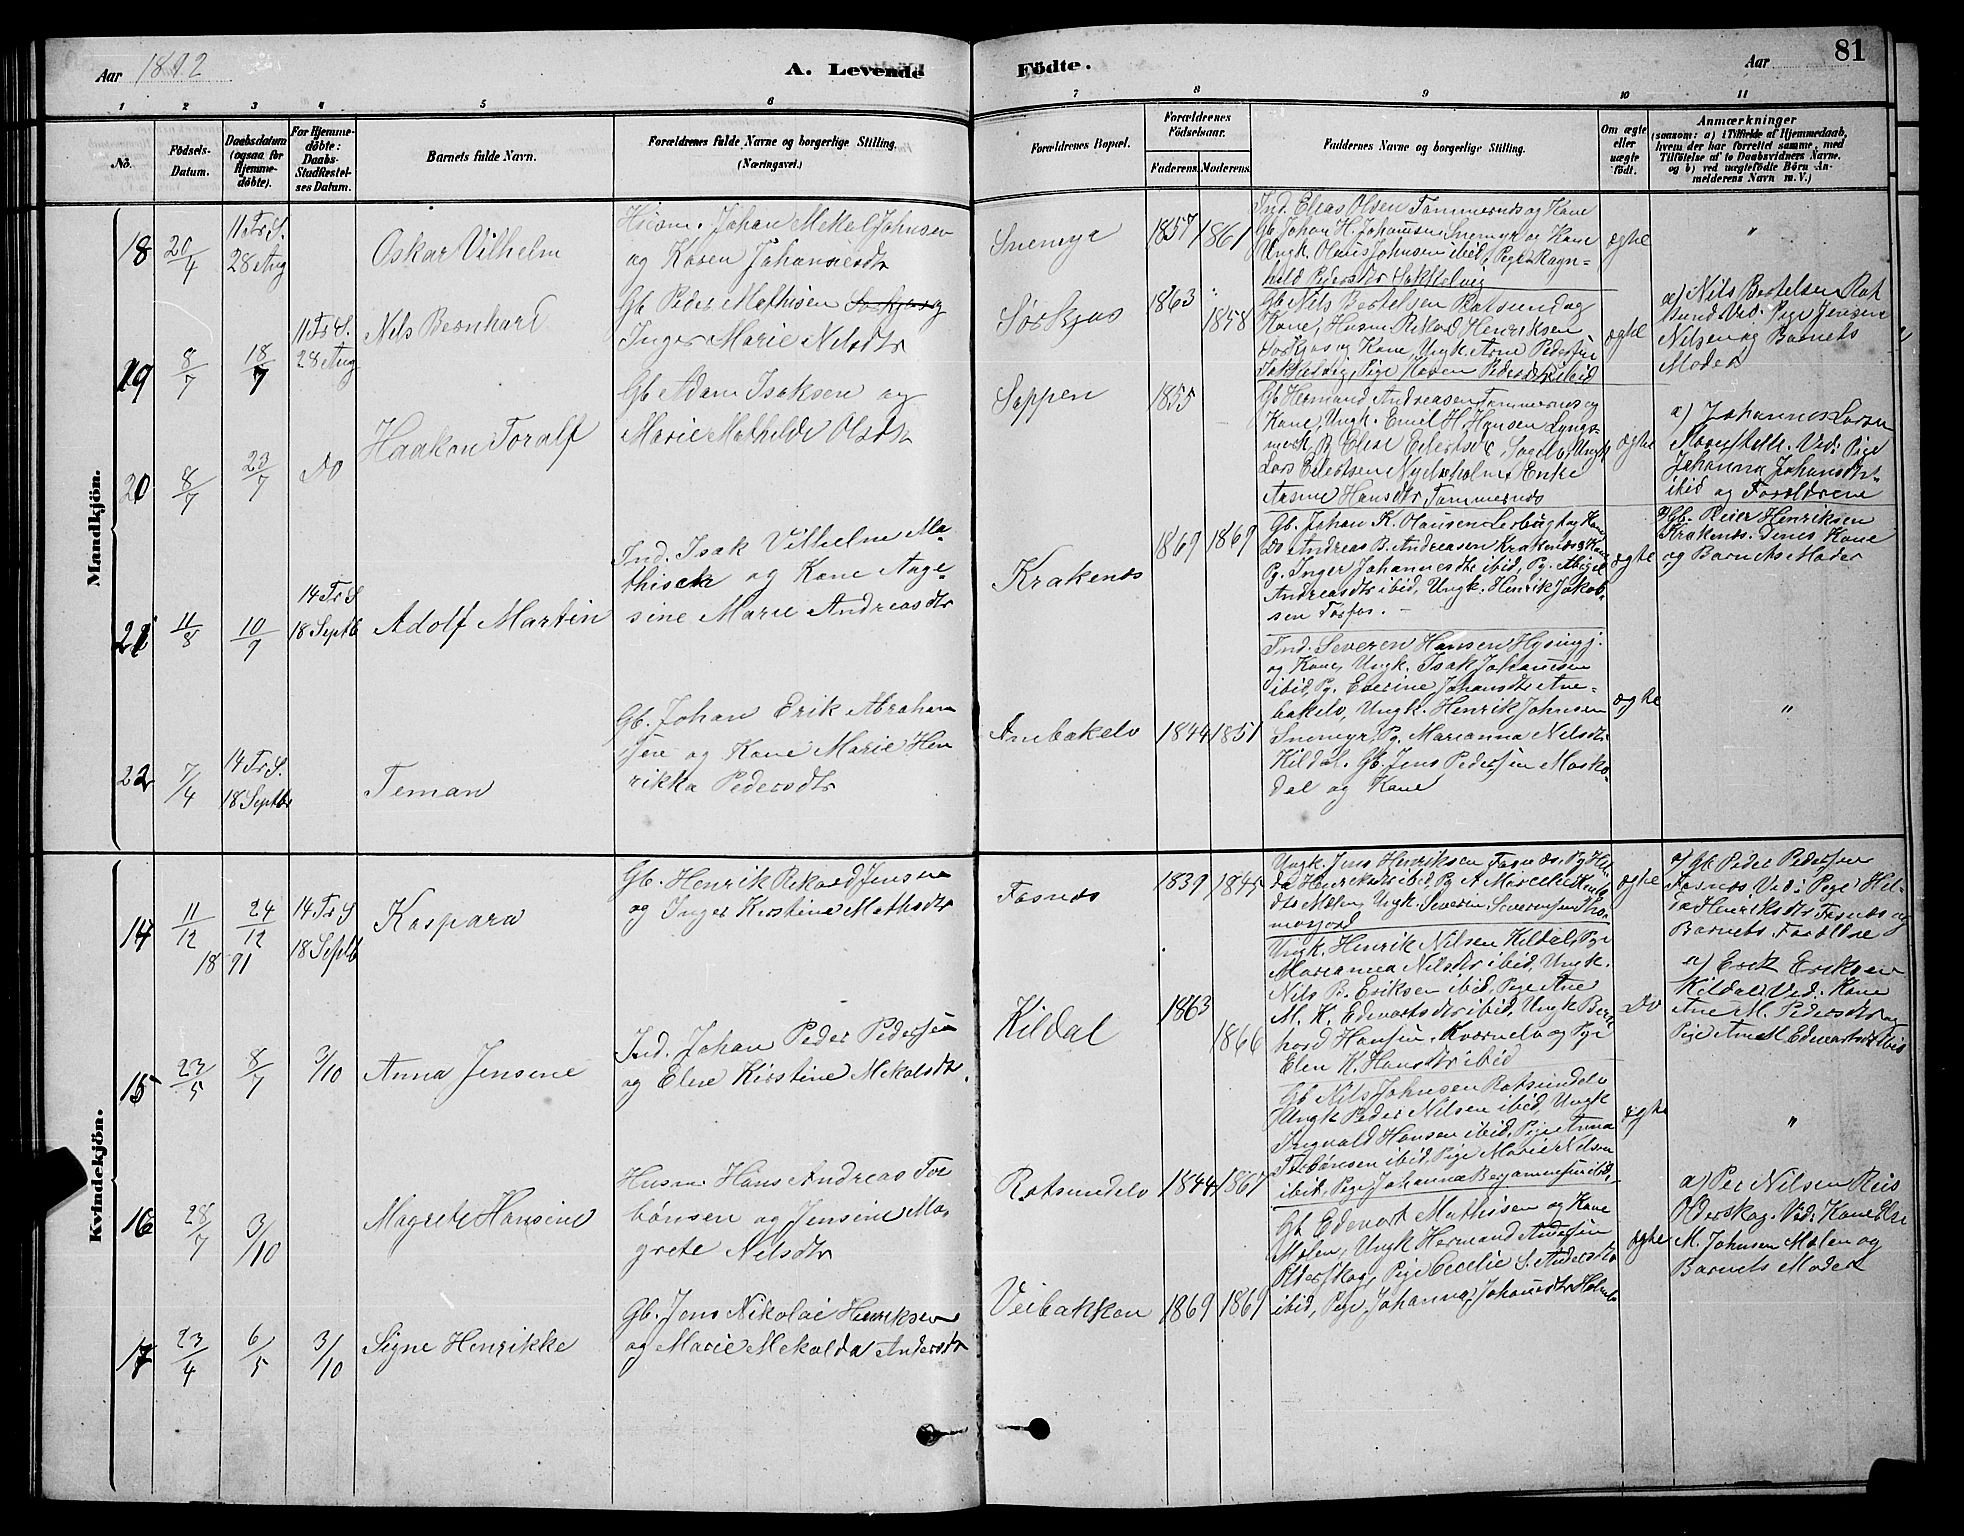 Aar 1892
A. Levende
Födte.
Aar
81
1
2
3
4
5
6
7
8
9
10
11
No.
Födsels-
Datum.
Daabsdatum
(ogsaa for
Hjemme-
döbte).
For Hjemme-
döbte:
Daabs-
Stadfæstel-
ses Datum.
Barnets fulde Navn.
Forældrenes fulde Navne og borgerlige Stilling.
(Næringsvei.)
Forældrenes Bopæl.
Forældrenes
Födselsaar.
Faderens.
Moderens.
Faddernes Navne og borgerlige Stilling.
Om ægte
eller
uægte
født.
Anmærkninger
(saasom: a) i Tilfælde af Hjemmedaab,
hvem der har forrettet samme, med
Tilföielse af to Daabsvidners Navne,
og b) ved uægtefödte Börn An-
melderens Navn m. V.)
Mandkjön.
18
20/4
11 Tr. S.
28 Aug
Oskar Vilhelm
Husm. Johan Mekel Johnsen
og Karen Johannesdtr
Snemyr
1857
1861
Ind. Elias Olsen Tammernes og Kone
Gb. Johan H. Johannsen Snemyr og Kone
Ungk. Olaus Johnsen ibid, Pige Ragn-
hild Pedersdtr
ægte
"
19
8/7
18/7
11 Tr S.
28 Aug
Nils Bernhard
Gb. Peder Mathisen Sorkjos og
Inger Marie Nilsdtr
Sørkjos
1863
1858
Gb. Nils Bertelsen Rotsund og
Kone, Husm. Rekard Henriksen
Sorkjos og Kone, Ungk. Arne Pedersen
Pige Karen Pedersdtr ibid
ægte
a) Nils Bertelsen Rot
sund Ved. Pige Jensen
Nilsen og Barnets
Moder
20
8/7
23/7
Do
Haakon Toralf
Gb Adam Isaksen og
Marie Mathilde Olsdtr
Soppen
1855
Gb Hermand Andreasen Tammernes og
Kone, Ungk. Emil H. Hansen Lyngs-
mark, P. Elise Eilertsdtr, Ungk
Lars Eilertsen Enke
Hansdtr, Tammernes
ægte
a) Johannes Larsen
Ved: Pige
Johanna Johansdtr
ibid og Forældrene
21
11/8
10/9
14 Tr S
18 Septb
Adolf Martin
Ind. Isak Vilhelm Ma-
thisen og Kone Ange-
sine Marie Andreasdtr
Krakenes
1869
1869
Gb. Johan K. Hansen og Kone
Do Andreas B. Andreasen Krakenes og Kone
Pg. Inger Johannesdtr ibid, Pg. Abigel
Andreasdtr ibid, Ungk. Henrik Jakob-
sen
ægte
a) Gb. Peier Henriksen
Krakenes. Denes Kone
og Barnets Moder
22
7/4
14 Tr S.
18 Septbr
Teman
Gb. Johan Erik Abraham
sen og Kone Marie Hen
rikka Pedersdtr
Anebakelv
1844
1851
Ind. Severen Hansen
og Kone, Ungk. Isak Johannesen
ibid, Pg. Everine Johansdtr Ane-
bakelv, Ungk. Henrik Johnsen
Snemyr, Pg. Marianna Nilsdtr
Kildal. Gb. Jens Pedersen Masko-
dal og Kone
ægte
"
Kvindekjön.
14
11/12
24/12
18 91
14 Tr S
18 Septb
Kaspara
Gb. Henrik Rekard Jensen
og Inger Kirstine Mathsdtr
Fosnes
1839
1845
Ungk. Jens Henriksen Fosnes, Pg Hel-
da Henriksdtr ibid, Pg A Marcelie Henk
dtr Molen, Ungk. Severin Severinsen
ægte
a) Gb. Peder Pedersen
Fosnes Ved: Pige Hel-
da Henriksdtr Fosnes og
Barnets Forældre
15
23/5
8/7
3/10
Anna Jensine
Ind. Johan Peder Pedersen
og Elene Kirstine Mekalsdtr.
Kildal
1863
1866
Ungk. Henrik Nilsen Kildal, Pige
Marianna Nilsdtr ibid, Ungk.
Nils P. Eriksen ibid, Pige Ane
M. K. Edevartsdtr ibid, Ungk Bern
hard Hansen, Kvænnelv og Pige
Elen K. Hansdtr ibid
Do
a) Erik Eriksen
Kildal Ved: Kone
Ane M. Pedersdtr og
Pige Ane M. Edevartsdtr ibid
16
28/7
3/10
Magrete Hansine
Husm. Hans Andreas Tor
bønsen og Jensine Ma-
grete Nilsdtr
Rotsundelv
1844
1867
Gb Nils Johnsen Rotsundelv
Ungk Peder Nilsen ibid, Ungk
Ingvald Hansen ibid, Pige Anna
Torbønsen ibid, Pige Marie Nilsen
ibid, Pige Johanna Benjaminsen ibid,
ægte
"
17
23/4
6/5
3/10
Signe Henrikke
Gb. Jens Nikolai Henriksen
og Marie Mekalda Andersdtr
Veibakken
1869
1869
Gb Edevart Mathisen og Kone
Molen, Ungk Hermand Andersen
Olderskog, Pige Cecilie S. Andersdtr
ibid, Pige Johanna Johansdtr
ægte
a) Per Nilsen Reis
Olderskog. Ved: Kone Else
M. Johnsen Molen og
Barnets Moder